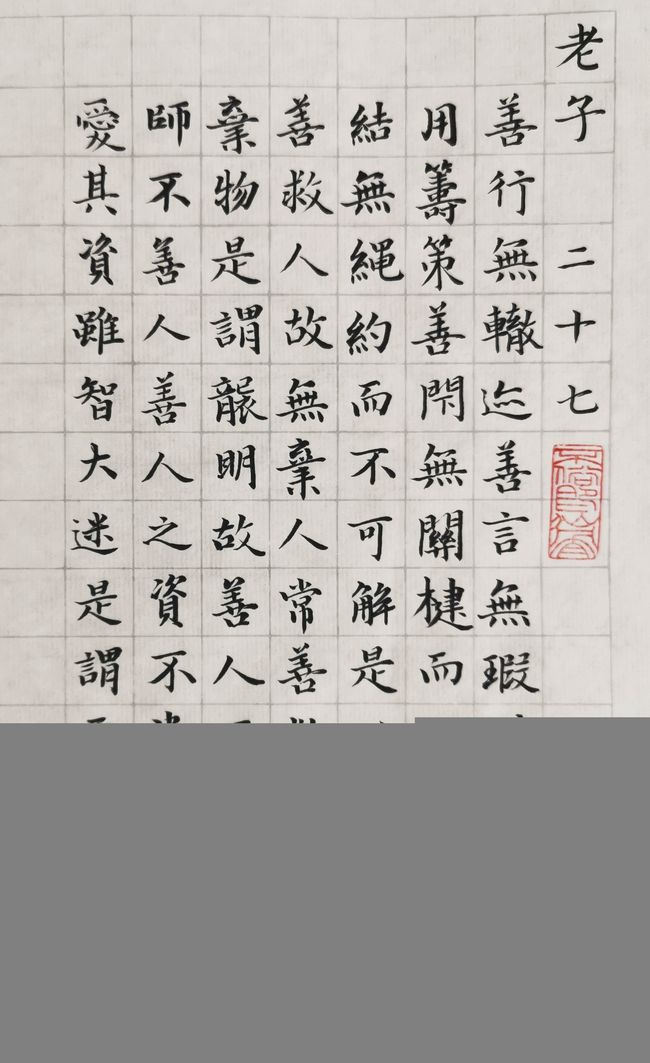 老子 二十七
善行無轍迹善言無瑕
用籌策善閇無關楗而
結無繩約而不可解是
善救人故無棄人常善
棄物是謂襲明故善人
師不善人善人之資不
愛其資雖智大迷是謂